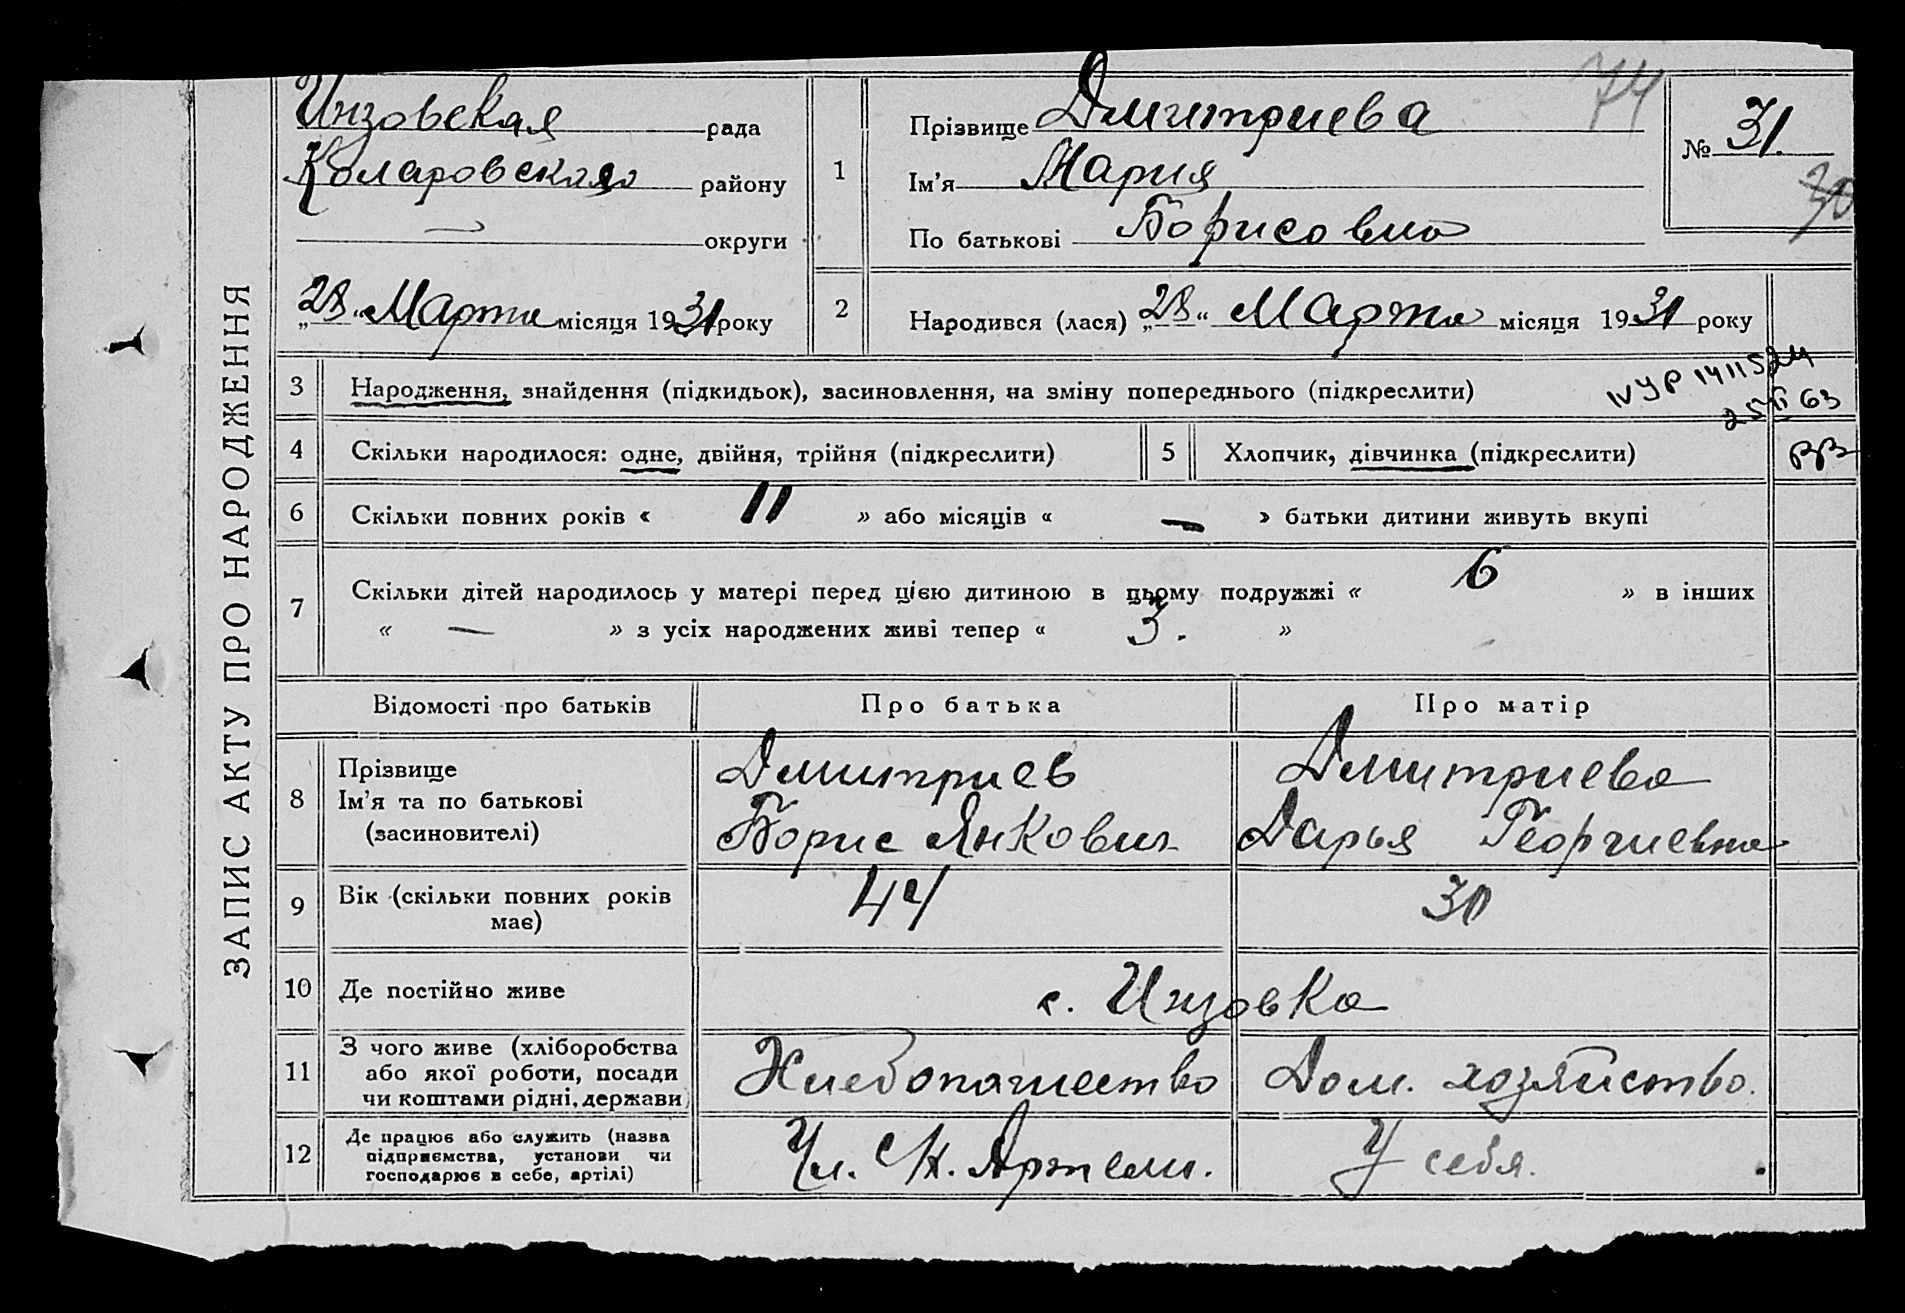 ЗАПИС АКТУ ПРО НАРОДЖЕННЯ
Инзовская рада
Коларовского району
— округи
„28“ Марта місяця 1931 року
1
Прізвище Дмитриева
Ім’я Мария
По батькові Борисовна
74
№ 31.
30
2
Народився (лася) „28“ Марта місяця 1931 року
3 Народження, знайдення (підкидьок), засиновлення, на зміну попереднього (підкреслити)
IV УР 1411524
63
4 Скільки народилося: одне, двійня, трійня (підкреслити)
5 Хлопчик, дівчинка (підкреслити)
6 Скільки повних років « 11 » або місяців « — » батьки дитини живуть вкупі
7 Скільки дітей народилось у матері перед цією дитиною в цьому подружжі « 6 » в інших
« — » з усіх народжених живі тепер « 3. »
Відомості про батьків Про батька Про матір
8 Прізвище
Ім’я та по батькові
(засиновителі)
Дмитриев
Борис Янкович
Дмитриева
Дарья Георгиевна
9 Вік (скільки повних років
має)
44
30
10 Де постійно живе с. Инзовка
11 З чого живе (хліборобства
або якої роботи, посади
чи коштами рідні, держави
Хлебопашество
Дом. хозяйство.
12 Де працює або служить (назва
підприємства, установи чи
господарює в себе, артілі)
Чл. С/Х. Артели.
У себя.